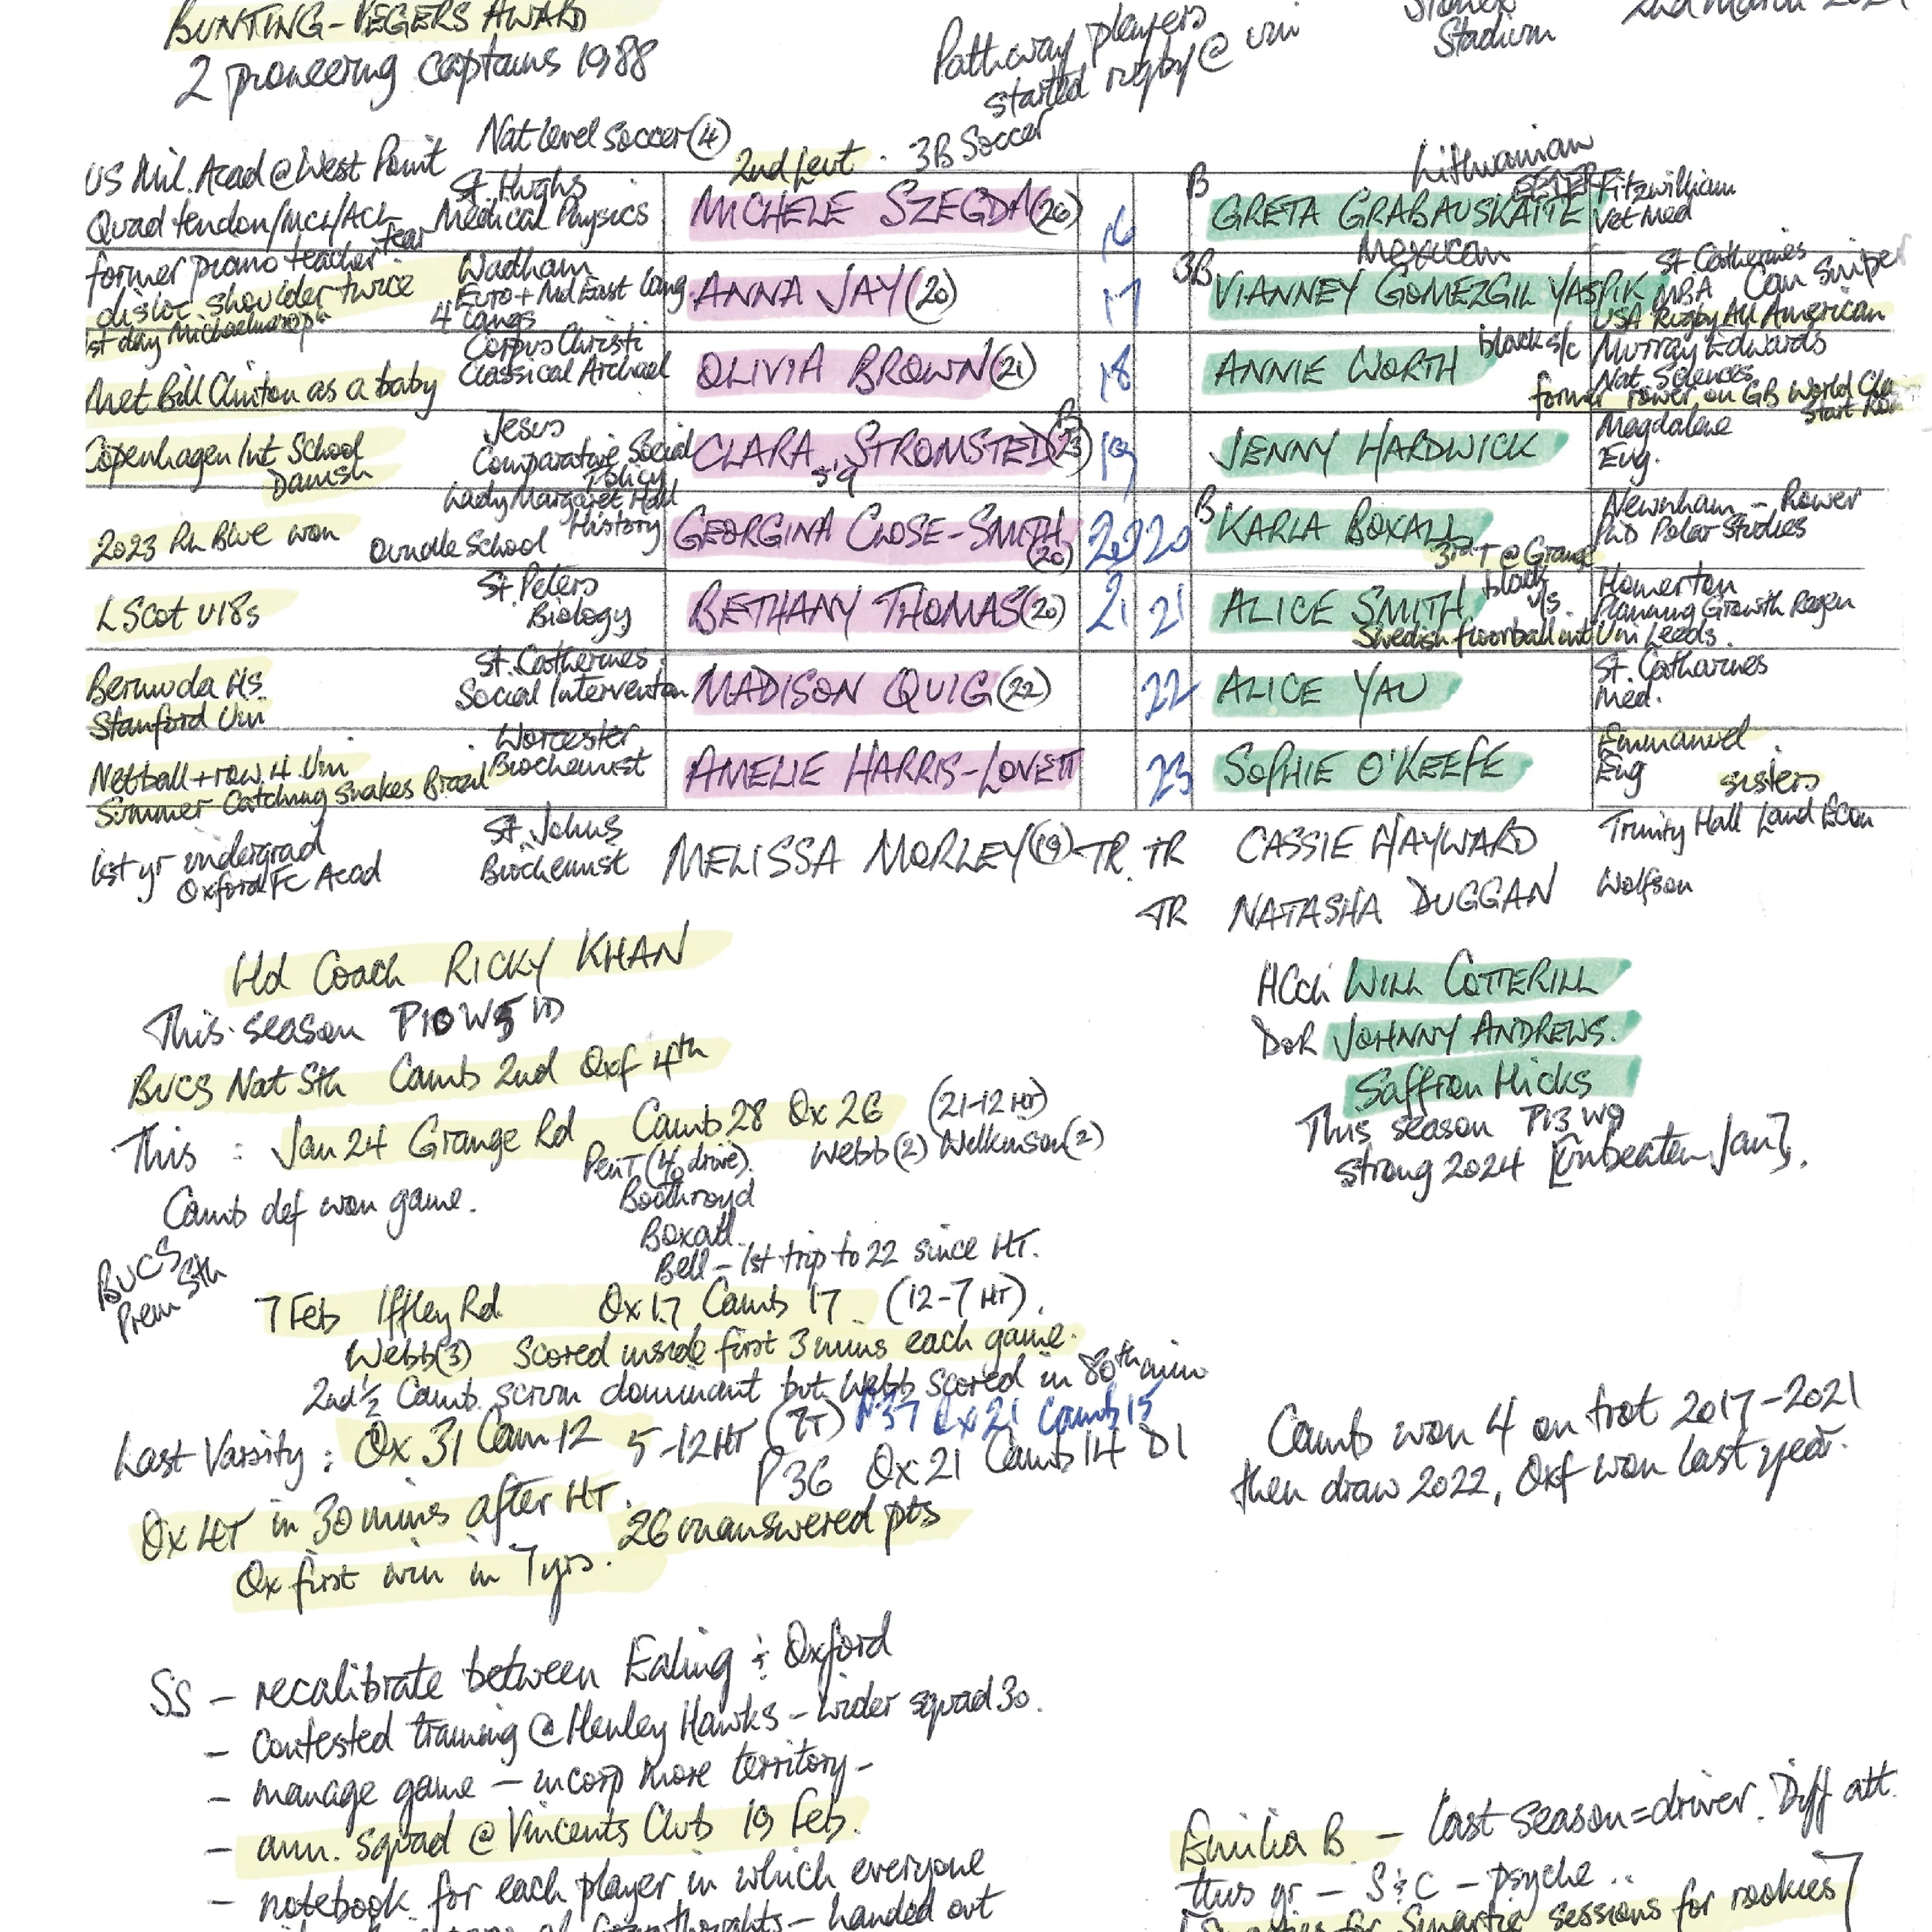 BUNTING-PEGERS AWARD
2 pioneering captains 1988
Pathway players
started rugby @ uni
Stadium
2nd March
US Mil. Acad @ West Point
Nat level soccer (4)
2nd Leut . 3B Soccer
Lithuanian
Quad tendon/MCL/ACL tear
St. Hughs
Medical Physics
MICHELE SZEGDA (26)
16
B
GRETA GRABAUSKAITE
Fitzwilliam
Vet Med
former piano teacher
disloc shoulder twice
1st day Michaelmas
Wadham
Euro + Mid East Lang
4 langs
ANNA JAY (20)
17
3B
Mexican
VIANNEY GOMEZGIL YASPIK
St Catherines
MBA Cam Sniper
USA Rugby All American
Met Bill Clinton as a baby
Corpus Christi
Classical Archael
OLIVIA BROWN (21)
18
ANNIE WORTH
black s/c
Murray Edwards
Nat. Sciences
former rower on GB World Cla
Start
Copenhagen Int School
Danish
Jesus
Comparative Social
Policy
CLARA STROMSTED (23)
B
5'9
19
JENNY HARDWICK
Magdalene
Eng.
2023 Rn Blue won
Oundle School
Lady Margaret Hall
History
GEORGINA CLOSE-SMITH
(20)
20
20
B
KARLA BOXALL
3rd T @ Grange
Newnham - Rower
PhD Polar Studies
L Scot U18s
St. Peters
Biology
BETHANY THOMAS (20)
21
21
ALICE SMITH
black
Swedish floorball int
Homerton
Planning Growth Regen
Uni Leeds.
Bermuda Hs.
Stanford Uni
St. Catherines
Social Interventon
MADISON QUIG (22)
22
ALICE YAU
St. Catharines
Med.
Netball + row 4 Uni
Summer Catching snakes Brazil
Worcester
Biochemist
AMELIE HARRIS-LOVETT
23
SOPHIE O'KEEFE
Emmanuel
Eng
sisters
1st yr undergrad
Oxford FC Acad
St. Johns
Biochemist
MELISSA MORLEY (19) TR.
TR CASSIE HAYWARD
Trinity Hall Land Econ
TR NATASHA DUGGAN
Wolfson
Hd Coach RICKY KHAN
This season P10 W5 1D
HCch WILL COTTERILL
DoR JOHNNY ANDREWS.
Saffron Hicks
This season P13 W9
strong 2024 [unbeaten Jan].
BUCS Nat Sth Camb 2nd Oxf 4th
This : Jan 24 Grange Rd Camb 28 Ox 26 (21-12 HT)
Pen T (4/0 drive). Webb (2) Wilkinson (2)
Boothroyd
Camb def won game.
Boxall
Bell - 1st trip to 22 since HT.
BUCS
Prem Sth
7 Feb Iffley Rd Ox 17 Camb 17 (12-7 HT).
Webb (3) Scored inside first 3 mins each game.
2nd ½ Camb. scrum dominant but Webb scored in 80th min
Last Varsity : Ox 31 Cam 12 5-12 HT (7T) P37 Ox 21 Camb 15
P36 Ox 21 Camb 14 D1
Ox 4T in 30 mins after HT. 26 unanswered pts
Ox first win in 7 yrs.
Camb won 4 on trot 2017-2021
then draw 2022, Oxf won last year.
SS - recalibrate between Ealing & Oxford
- contested training @ Henley Hawks - wider squad 30.
- manage game - incorp more territory -
- ann. squad @ Vincents Club 19 Feb.
- notebook for each player in which everyone
thoughts - handed out
Emilia B - last season = driver. Diff att.
this yr - S & C - psyche ..
sessions for rookies